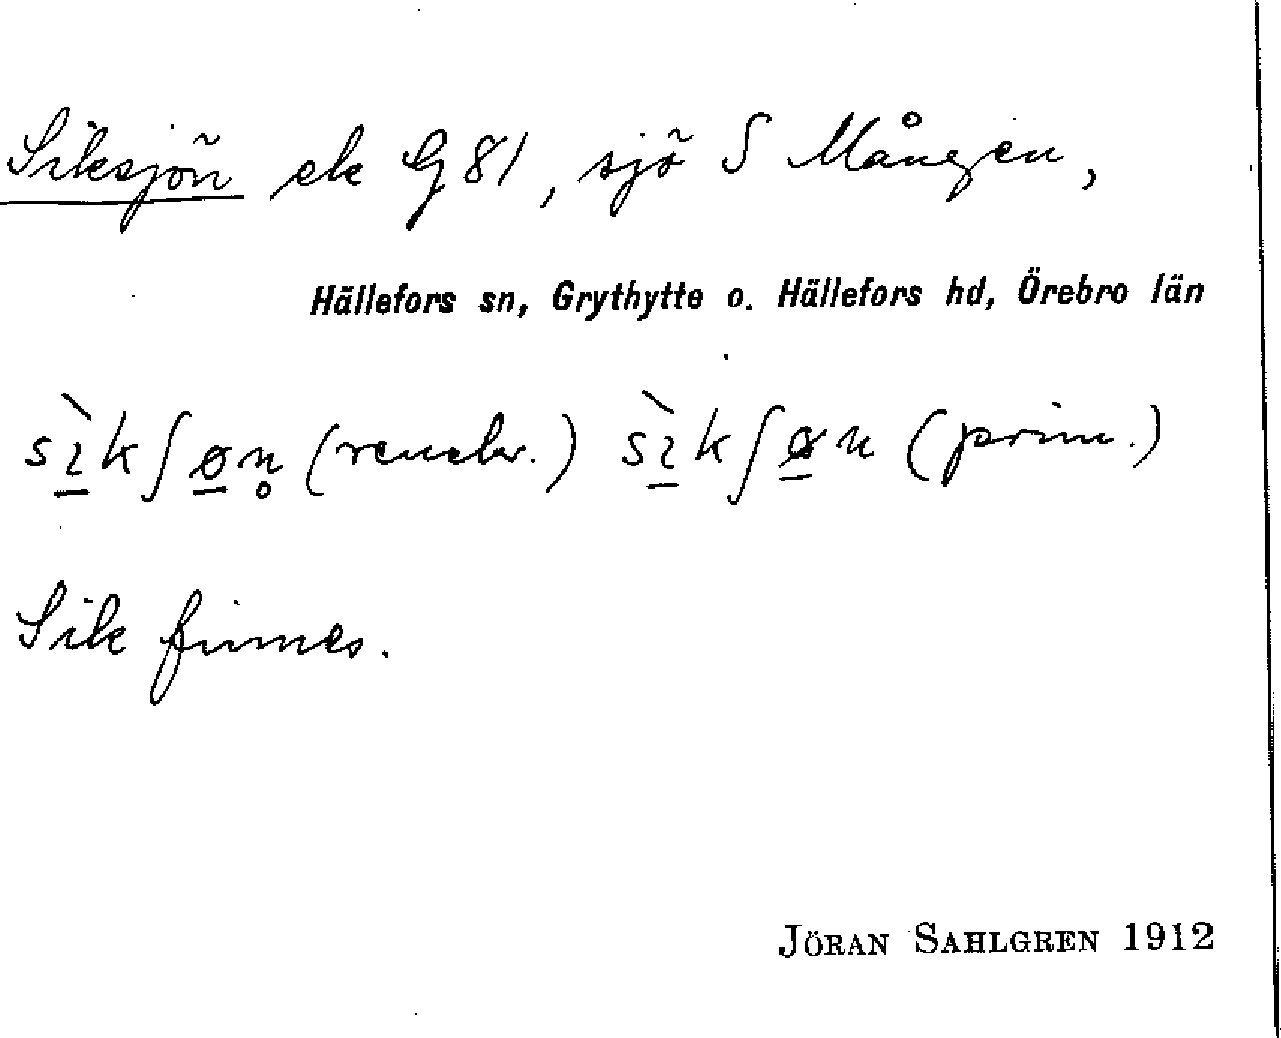 Siksjön ek G 81, sjö S Mången,
Hällefors sn, Grythytte o. Hällefors hd, Örebro län
sɩ̠̀kʃø̠n̥ (renskr.) sɩ̠̀kʃø̠n (prim.)
Sik finnes.
JÖRAN SAHLGREN 1912